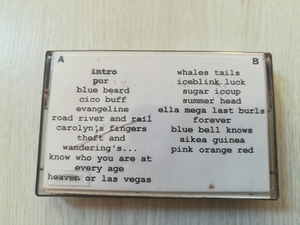 A
intro
pur
blue beard
cico buff
evangeline
road river and rail
carolyn's fingers
theft and
wandering's...
know who you are at
every age
heaven or las vegas
B
whales tails
iceblink luck
sugar iccup
summer head
ella mega last burls
forever
blue bell knows
aikea guinea
pink orange red